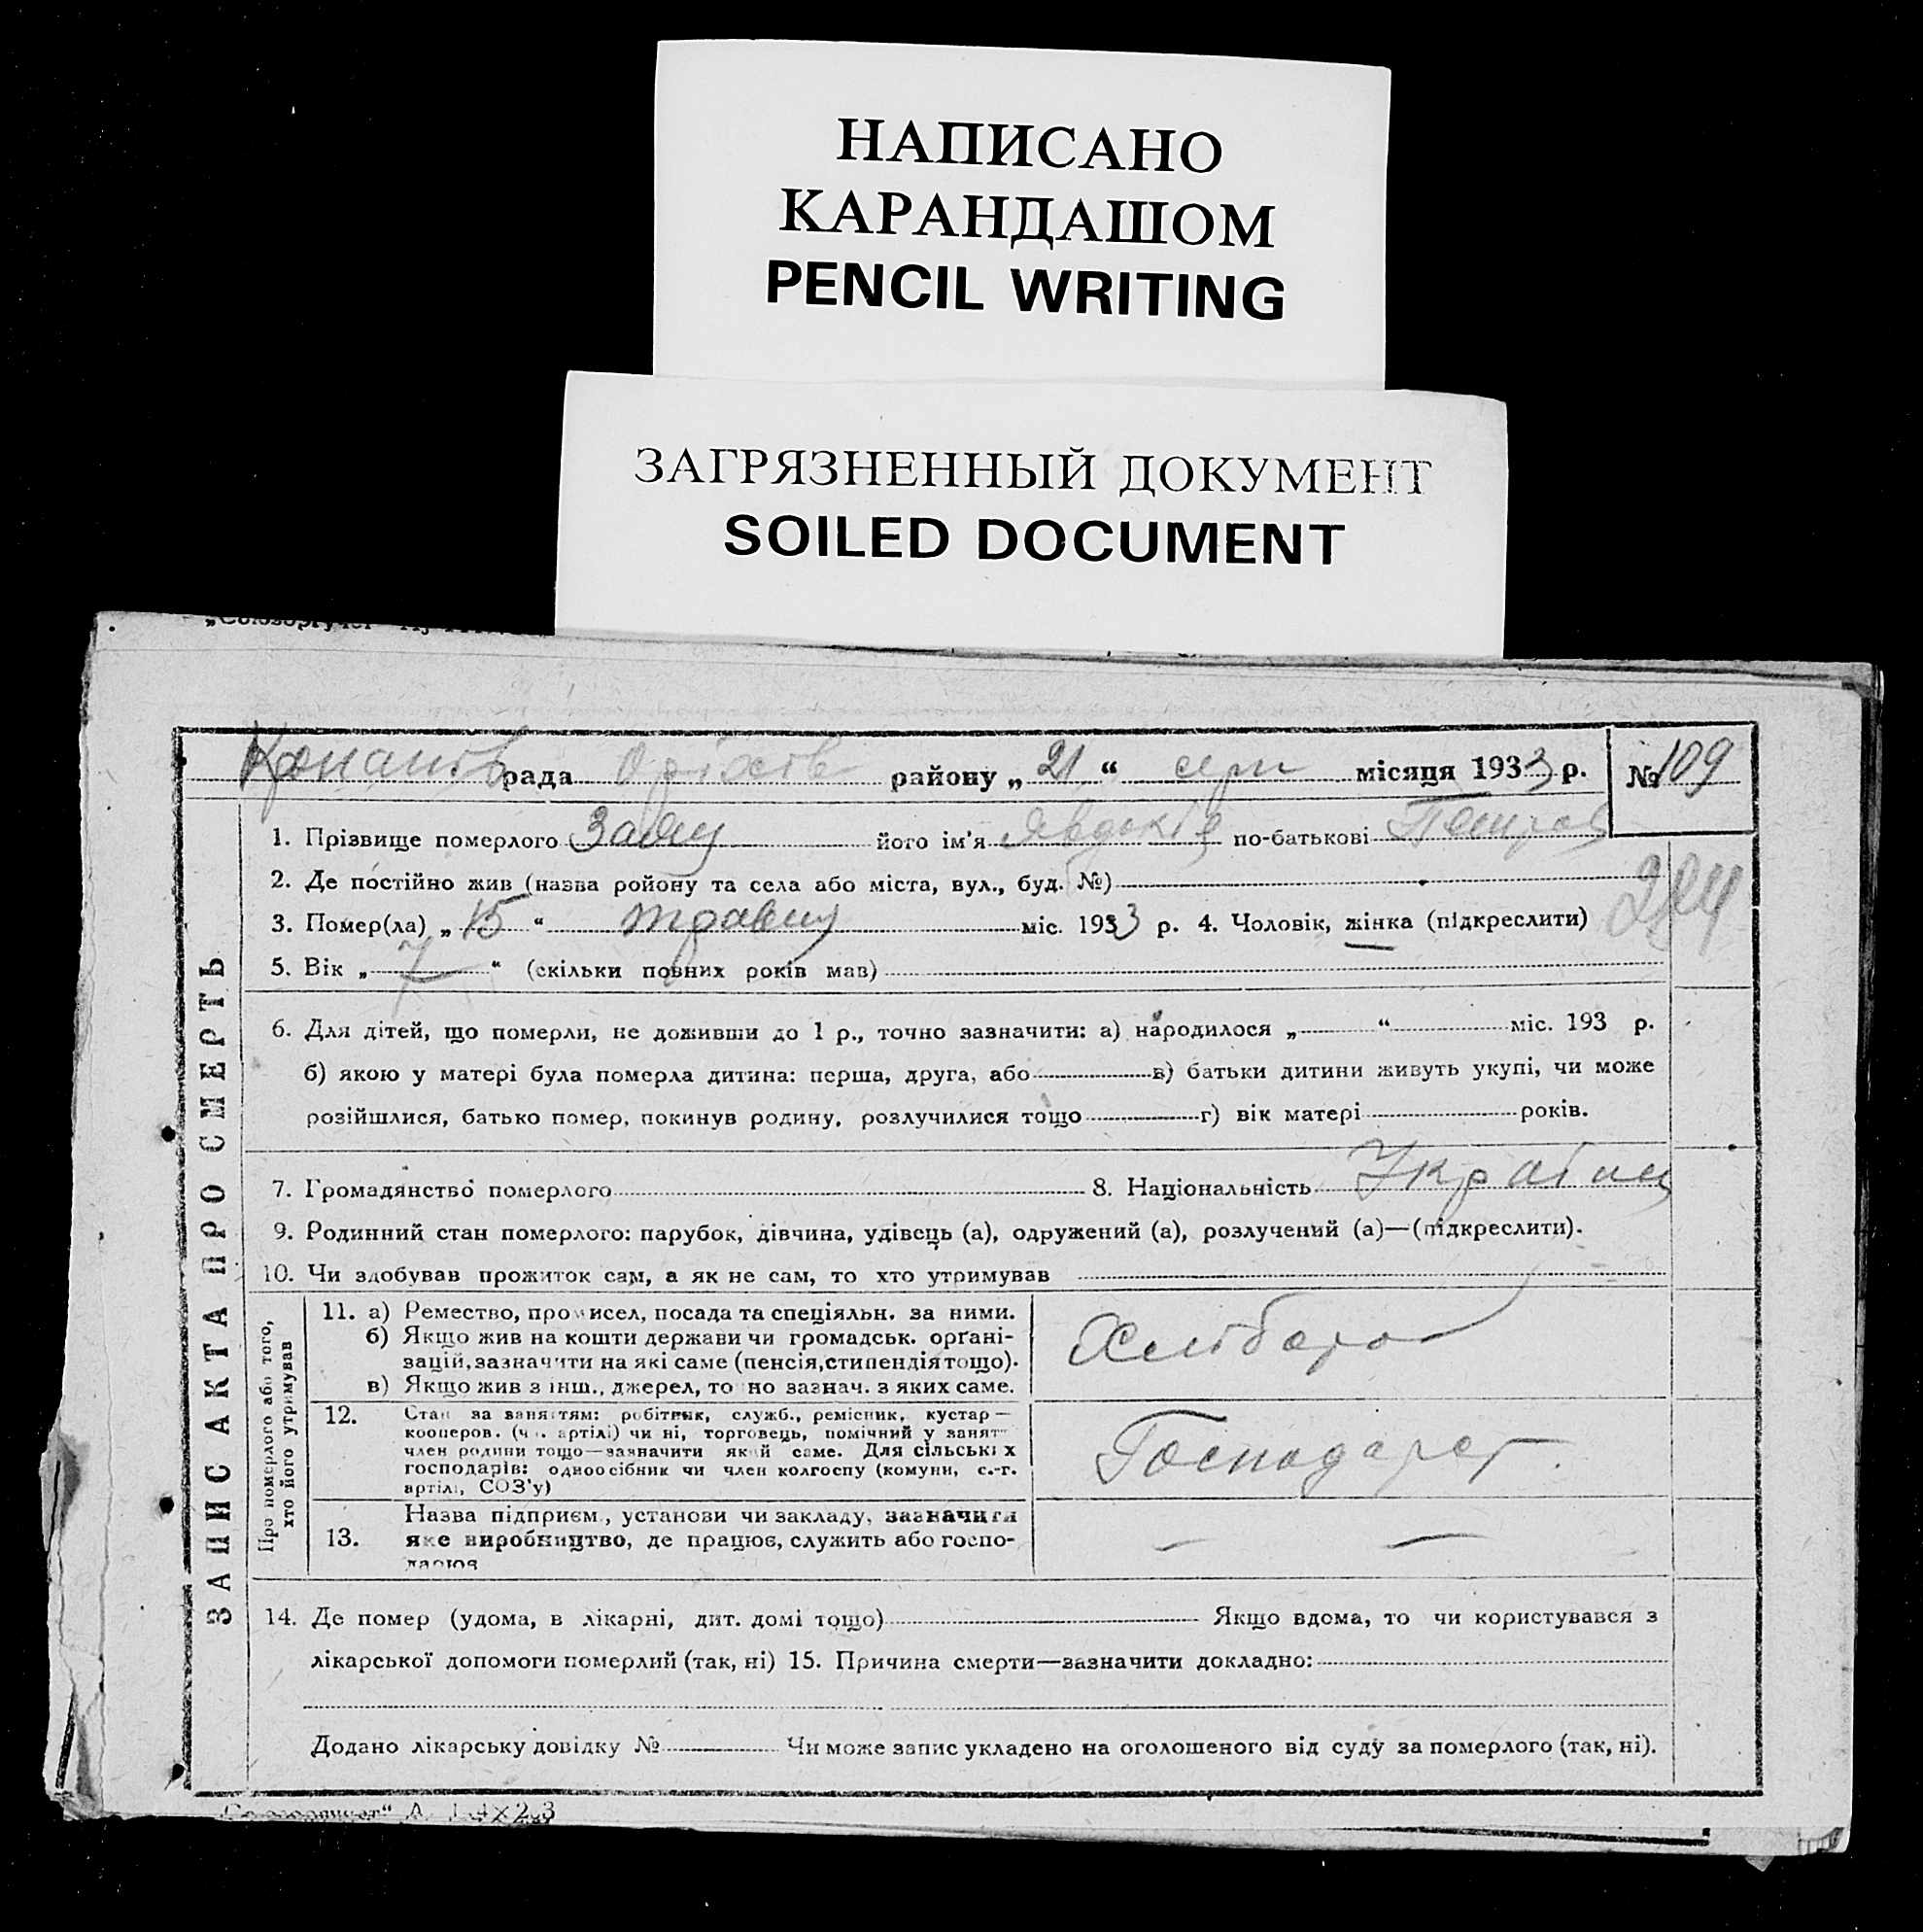 НАПИСАНО
КАРАНДАШОМ
PENCIL WRITING
ЗАГРЯЗНЕННЫЙ ДОКУМЕНТ
SOILED DOCUMENT
рада Оріхів району „ 21 “ серп місяця 1933 р. № 109
1. Прізвище померлого його ім'я Явдокія по-батькові Петров
2. Де постійно жив (назва ройону та села або міста, вул., буд. №)
3. Помер(ла) „ 15 “ травня міс. 1933 р. 4. Чоловік, жінка (підкреслити)
5. Вік „ 7 “ (скільки повних років мав)
6. Для дітей, що померли, не доживши до 1 р., точно зазначити: а) народилося „ “ міс. 193 р.
б) якою у матері була померла дитина: перша, друга, або в) батьки дитини живуть укупі, чи може
розійшлися, батько помер, покинув родину, розлучилися тощо г) вік матері років.
7. Громадянство померлого 8. Національність Україн
9. Родинний стан померлого: парубок, дівчина, удівець (а), одружений (а), розлучений (а)—(підкреслити).
10. Чи здобував прожиток сам, а як не сам, то хто утримував
ЗАПИС АКТА ПРО СМЕРТЬ
Про померлого або того,
хто його утримував
11. а) Ремество, промисел, посада та спеціяльн. за ними.
б) Якщо жив на кошти держави чи громадськ. орґані-
зацій, зазначити на які саме (пенсія, стипендія тощо).
в) Якщо жив з інш., джерел, точно зазнач. з яких саме.
Хлібороб
12. Стан за заняттям: робітник, служб., ремісник, кустар —
кооперов. (чл. артілі) чи ні, торговець, помічний у занят
член родини тощо—зазначити який саме. Для сільських
господарів: одноосібник чи член колгоспу (комуни, с.-г.
артілі, СОЗ'у)
Господарст.
13. Назва підприєм., установи чи закладу, зазначити
яке виробництво, де працює, служить або госпо-
дарює
— —
14. Де помер (удома, в лікарні, дит. домі тощо) Якщо вдома, то чи користувався з
лікарської допомоги померлий (так, ні) 15. Причина смерти—зазначити докладно:
Додано лікарську довідку № Чи може запис укладено на оголошеного від суду за померлого (так, ні).